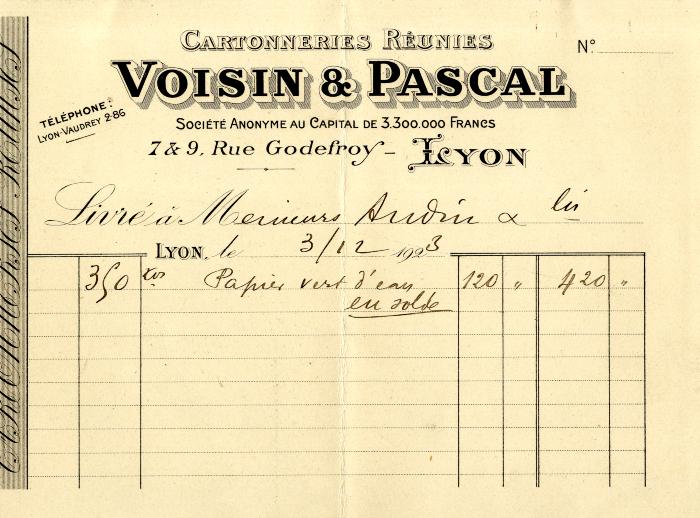 CARTONNERIES RÉUNIES
N°
VOISIN & PASCAL
TÉLÉPHONE:
LYON-VAUDREY 2-86
SOCIÉTÉ ANONYME AU CAPITAL DE 3.300.000 FRANCS
7 & 9, Rue Godefroy - LYON
Livré à Messieurs Audin & Cie
LYON, le 3/12 1923
350 kos Papier vert d'eau 120 " 420 "
en solde